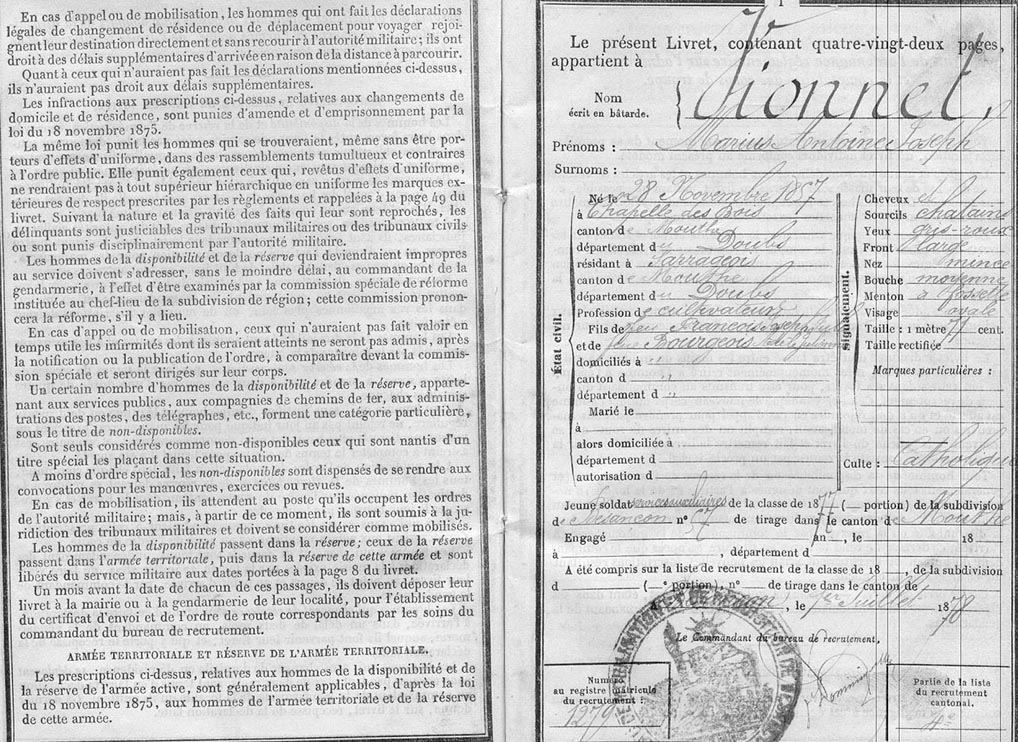 En cas d'appel ou de mobilisation, les hommes qui ont fait les déclarations
légales de changement de résidence ou de déplacement pour voyager rejoi-
gnent leur destination directement et sans recourir à l'autorité militaire; ils ont
droit à des délais supplémentaires d'arrivée en raison de la distance à parcourir.
Quant à ceux qui n'auraient pas fait les déclarations mentionnées ci-dessus,
ils n'auraient pas droit aux délais supplémentaires.
Les infractions aux prescriptions ci-dessus, relatives aux changements de
domicile et de résidence, sont punies d'amende et d'emprisonnement par la
loi du 18 novembre 1875.
La même loi punit les hommes qui se trouveraient, même sans être por-
teurs d'effets d'uniforme, dans des rassemblements tumultueux et contraires
à l'ordre public. Elle punit également ceux qui, revêtus d'effets d'uniforme,
ne rendraient pas à tout supérieur hiérarchique en uniforme les marques ex-
térieures de respect prescrites par les règlements et rappelées à la page 49 du
livret. Suivant la nature et la gravité des faits qui leur sont reprochés, les
délinquants sont justiciables des tribunaux militaires ou des tribunaux civils
ou sont punis disciplinairement par l'autorité militaire.
Les hommes de la disponibilité et de la réserve qui deviendraient impropres
au service doivent s'adresser, sans le moindre délai, au commandant de la
gendarmerie, à l'effet d'être examinés par la commission spéciale de réforme
instituée au chef-lieu de la subdivision de région; cette commission pronon-
cera la réforme, s'il y a lieu.
En cas d'appel ou de mobilisation, ceux qui n'auraient pas fait valoir en
temps utile les infirmités dont ils seraient atteints ne seront pas admis, après
la notification ou la publication de l'ordre, à comparaître devant la commis-
sion spéciale et seront dirigés sur leur corps.
Un certain nombre d'hommes de la disponibilité et de la réserve, apparte-
nant aux services publics, aux compagnies de chemins de fer, aux adminis-
trations des postes, des télégraphes, etc., forment une catégorie particulière,
sous le titre de non-disponibles.
Sont seuls considérés comme non-disponibles ceux qui sont nantis d'un
titre spécial les plaçant dans cette situation.
A moins d'ordre spécial, les non-disponibles sont dispensés de se rendre aux
convocations pour les manœuvres, exercices ou revues.
En cas de mobilisation, ils attendent au poste qu'ils occupent les ordres
de l'autorité militaire; mais, à partir de ce moment, ils sont soumis à la ju-
ridiction des tribunaux militaires et doivent se considérer comme mobilisés.
Les hommes de la disponibilité passent dans la réserve; ceux de la réserve
passent dans l'armée territoriale, puis dans la réserve de cette armée et sont
libérés du service militaire aux dates portées à la page 8 du livret.
Un mois avant la date de chacun de ces passages, ils doivent déposer leur
livret à la mairie ou à la gendarmerie de leur localité, pour l'établissement
du certificat d'envoi et de l'ordre de route correspondants par les soins du
commandant du bureau de recrutement.
ARMÉE TERRITORIALE ET RÉSERVE DE L'ARMÉE TERRITORIALE.
Les prescriptions ci-dessus, relatives aux hommes de la disponibilité et de
la réserve de l'armée active, sont généralement applicables, d'après la loi
du 18 novembre 1875, aux hommes de l'armée territoriale et de la réserve
de cette armée.
1
Le présent Livret, contenant quatre-vingt-deux pages,
appartient à
Nom
écrit en bâtarde.
Vionnet,
Prénoms : Marius Antoine Joseph
Surnoms :
État civil.
Né le 28 Novembre 1857
à Chapelle des Bois
canton de Mouthe
département du Doubs
résidant à Sarrageois
canton de Mouthe
département du Doubs
Profession de cultivateur
Fils de feu François Joseph
et de feue Bourgeois
domiciliés à "
canton d "
département d "
Marié le
à
alors domiciliée à
département d
autorisation d
Signalement.
Cheveux et
Sourcils chatains
Yeux gris-roux
Front large
Nez mince
Bouche moyenne
Menton à fossette
Visage ovale
Taille : 1 mètre 77 cent.
Taille rectifiée
Marques particulières :
Culte : Catholique
Jeune soldat services auxiliaires de la classe de 1877 ( — portion) de la subdivision
de Besançon n° 67 de tirage dans le canton de Mouthe
Engagé an , le 18
à , département d
A été compris sur la liste de recrutement de la classe de 18 , de la subdivision
d ( ° portion), n° de tirage dans le canton de
, le 1er Juillet 1878
Le Commandant du bureau de recrutement,
Numéro
au registre matricule
du recrutement :
1279
Partie de la liste
du recrutement
cantonal.
4e